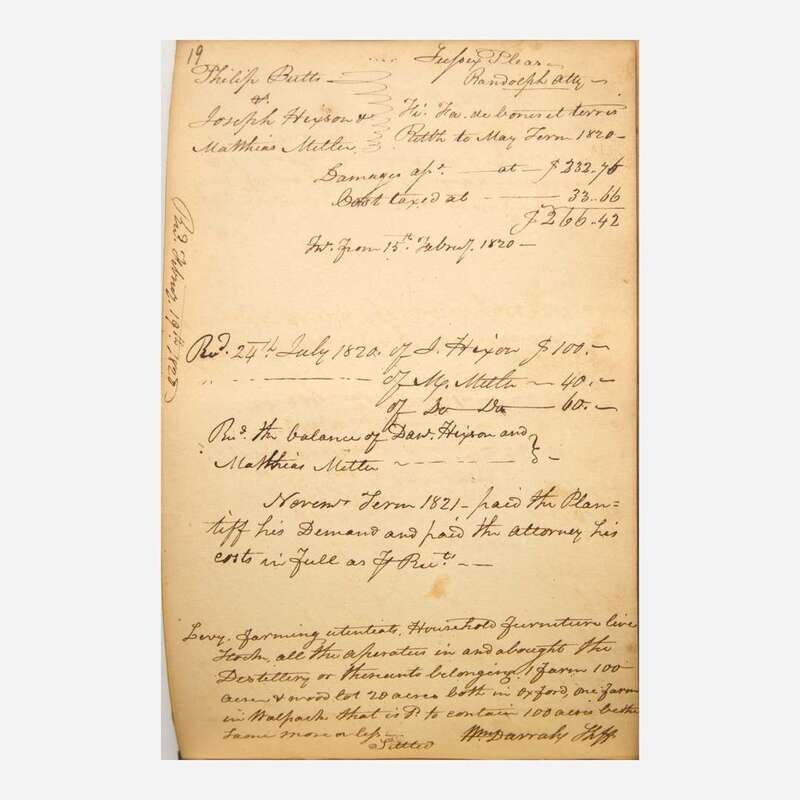 19
Philip Butts
Sussex Pleas
Randolph Atty
vs.
Joseph Hixson &
Matthias Mitler
Fi. Fa. de bonis et terris
Retble to May Term 1820
Damages assd. at $ 232-76
Cost taxed at 33-66
$ 266-42
Int. from 15th. Februy. 1820
Recd. Februy. 19th 1820
Recd. 24th. July 1820. of J. Hixson $ 100.
" of M. Mitler 40.
of Do Do 60.
Recd. the balance of Danl. Hixson and
Matthias Mitler
Novemr Term 1821 - paid the Plan=
tiff his Demand and paid the attorney his
costs in full as Rects.
Levy. farming utentials, Household furniture live
Stock, all the aperates in and abought the
Destillery or thereunto belonging, 1 farm 100
acres & wood lot 20 acres both in Oxford, one farm
in Walpack that is Sd. to contain 100 acres be the
same more or less
Settled
Wm Darrah Shff